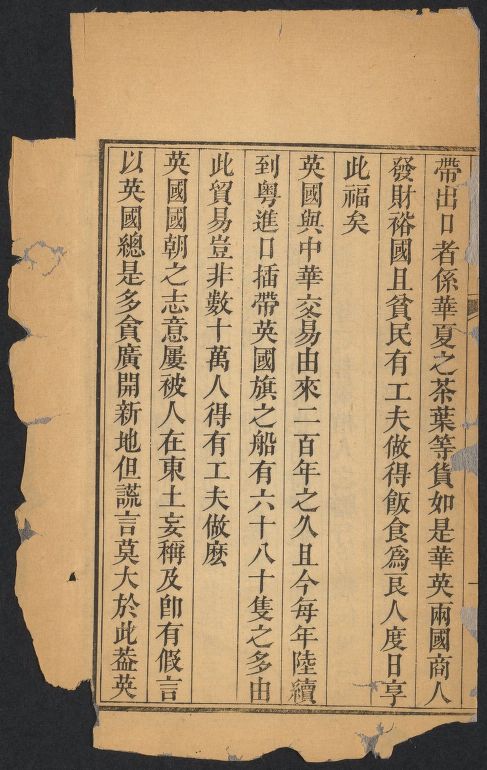 帶出口者係華夏之茶葉等貨如是華英兩國商人
發財裕國且貧民有工夫做得飯食爲良人度日享
此福矣
英國與中華交易由來二百年之久且今每年陸續
到粵進口插帶英國旗之船有六十八十隻之多由
此貿易豈非數十萬人得有工夫做麽
英國國朝之志意屢被人在東土妄稱及卽有假言
以英國總是多貪廣開新地但謊言莫大於此葢英